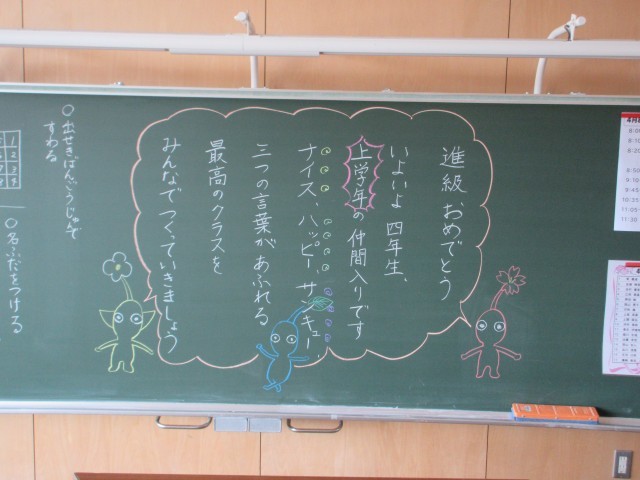 進級 おめでとう
いよいよ 四年生、
上学年の 仲間入りです
ナイス、ハッピー、サンキュー、
三つの言葉が あふれる
最高のクラスを
みんなで つくっていきましょう
○出せきばんごうじゅんで
すわる
○名ふだをつける